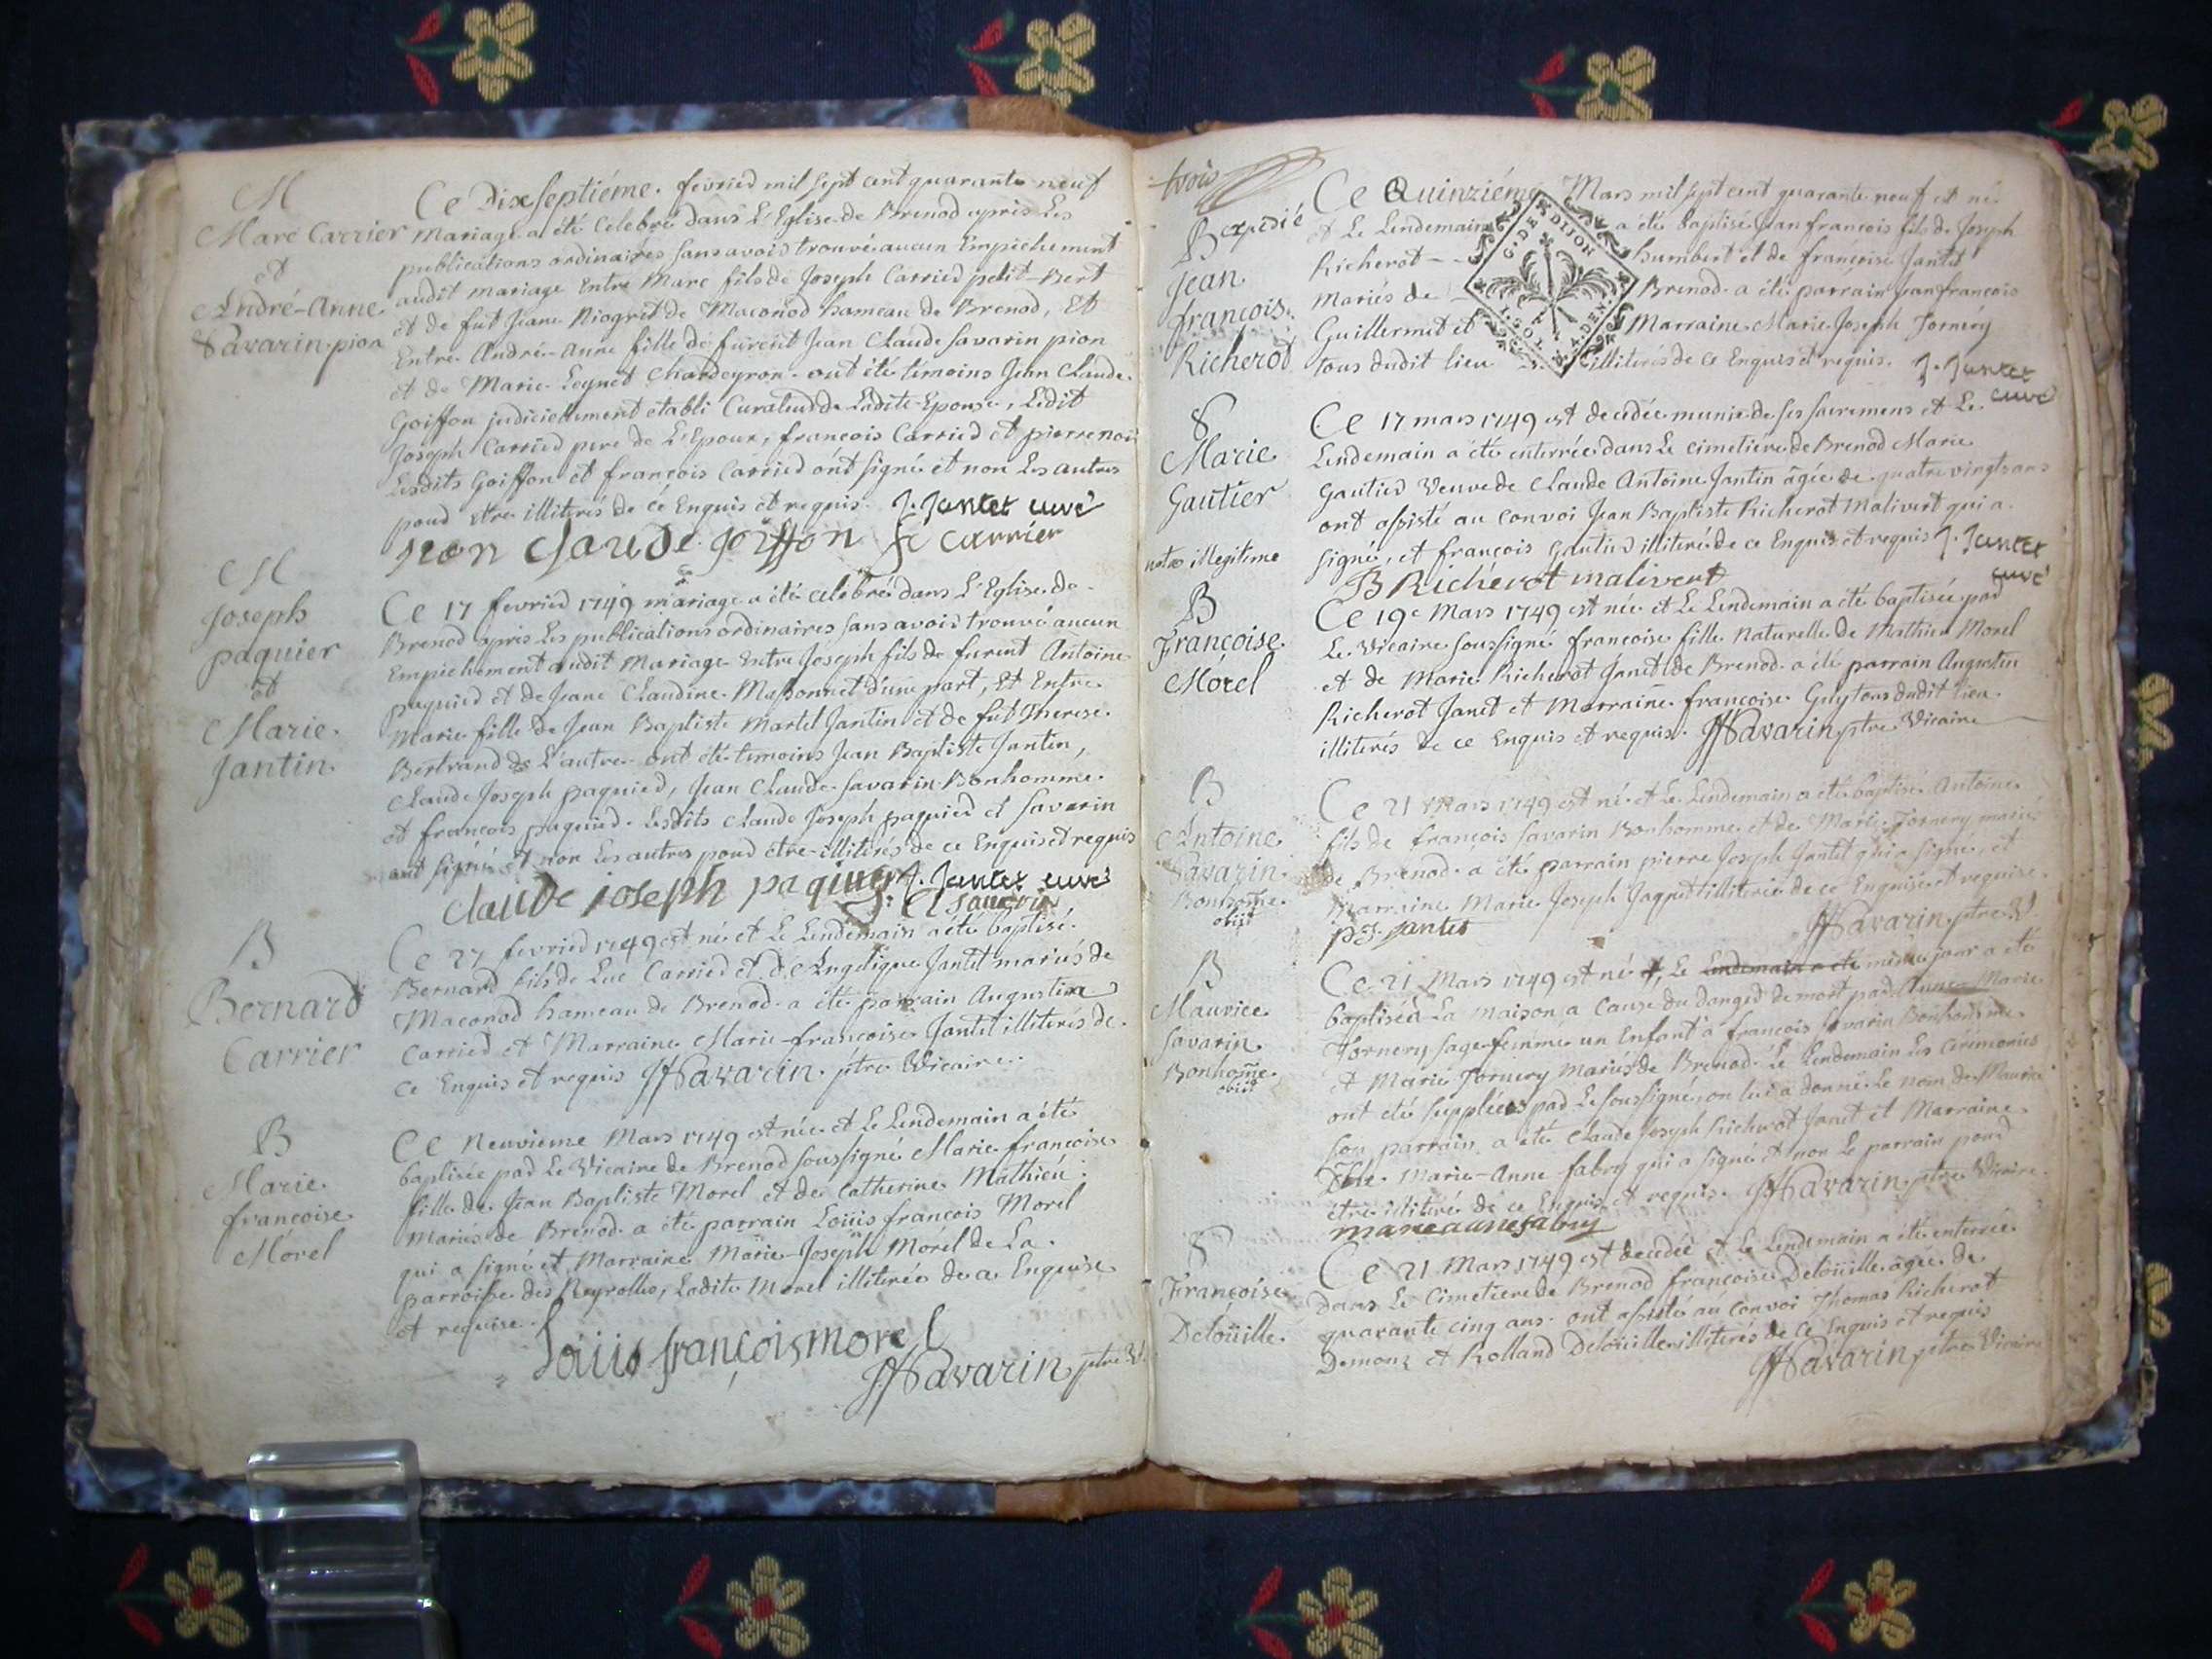 M
Marc Carrier
et
André-Anne
Savarin pion
Ce Dixseptiéme. fevrier mil sept cent quarante neuf
mariage a été celebré dans L'Eglise de Brenod apres Les
publications ordinaires sans avoir trouvé aucun Empichement
audit mariage Entre Marc fils de Joseph Carrier petit-Bert
et de fut Jeane Niogret de Maconod hameau de Brenod, Et
Entre André-Anne fille de furent Jean Claude Savarin pion
et de Marie Leynet Chardeyron. ont été temoins Jean Claude
Goiffon judiciellement etabli Curateur de Ladite Epouse, Ledit
Joseph Carrier pere de L'Epoux, françois Carrier et pierre
Lesdits Goiffon et françois Carrier ont signé et non Les autres
pour Etre illiterés de ce Enquis et requis. J. Jantet curé
jean claude goiffon f carrier
M
Joseph
paquier
et
Marie
Jantin
Ce 17 fevrier 1749 mariage a été celebré dans L'Eglise de
Brenod apres Les publications ordinaires sans avoir trouvé aucun
Empichement audit Mariage Entre Joseph fils de furent Antoine
paquier et de Jeane Claudine Massonnet d'une part, Et Entre
Marie fille de Jean Baptiste Martel Jantin et de fut Therese
Bertrand de L'autre. ont été temoins Jean Baptiste Jantin,
Claude Joseph paquier, Jean Claude Savarin Bonhomme
et françois paquier. Lesdits Claude Joseph paquier et Savarin
ont signé et non Les autres pour etre illiterés de ce Enquis et requis
claude joseph paquier J. Jantet curé
savarin
B
Bernard
Carrier
Ce 27 fevrier 1749 est né et Le Lendemain a été baptisé
Bernard fils de Luc Carrier et d'Angelique Jantet mariés de
Maconod hameau de Brenod. a été parrain Augustin
Carrier et Marraine Marie-françoise Jantet illiterés de
ce Enquis et requis JJSavarin ptre Vicaire
B
Marie
françoise
Morel
Ce Neuvieme Mars 1749 est née et Le Lendemain a été
baptisée par Le Vicaire de Brenod soussigné Marie françoise
fille de Jean Baptiste Morel et de Catherine Mathieu
mariés de Brenod. a été parrain Loüis françois Morel
qui a signé et Marraine Marie-Joseph Morel de La
parroisse des Neyrolles, Ladite Morel illiterée de ce Enquise
et requise.
Loüis françois morel
JJSavarin ptre V.
trois
B expedié
Jean
françois
Richerot
Ce Quinziéme Mars mil sept cent quarante neuf est né
et Le Lendemain a été baptisé Jean françois fils de Joseph
Richerot humbert et de françoise Jantet
mariés de Brenod. a été parrain Jean françois
Guillermet et Marraine Marie Joseph Tornery
tous dudit lieu illiterés de ce Enquis et requis. J. Jantet
curé
G. DE DIJON
S
Marie
Gautier
Ce 17 mars 1749 est decedée munie de ses sacremens et Le
Lendemain a été enterrée dans Le cimetiere de Brenod Marie
Gautier Veuve de Claude Antoine Jantin âgée de quatre vingts ans
ont assisté au convoi Jean Baptiste Richerot Malivert qui a
signé, et françois Gautier illiteré de ce Enquis et requis J. Jantet
curé
B Richerot malivert
illegitime
B
Françoise
Morel
Ce 19e Mars 1749 est née et Le Lendemain a été baptisée par
Le Vicaire soussigné françoise fille Naturelle de Mathieu Morel
et de Marie Richerot Janet de Brenod. a été parrain Augustin
Richerot Janet et Marraine françoise Guy tous dudit lieu
illiterés de ce Enquis et requis. JJSavarin ptre Vicaire
B
Antoine
Savarin
Bonhome
obiit
Ce 21 Mars 1749 est né et Le Lendemain a été baptisé Antoine
fils de françois Savarin Bonhomme et de Marie Tornery mariés
de Brenod. a été parrain pierre Joseph Jantet qui a signé, et
Marraine Marie Joseph Jaquet illiterée de ce Enquise et requise.
pj. jantet JJSavarin ptre V.
B
Maurice
Savarin
Bonhome
obiit
Ce 21 Mars 1749 est né et, Le Lendemain a été même jour a été
baptisé a La maison a Cause du danger de mort par Marie
Tornery sage-femme un Enfant a françois Savarin Bonhomme
et Marie Tornery mariés de Brenod. Le Lendemain Les ceremonies
ont été suppléées par Le soussigné, on lui a donné Le nom de Maurice
son parrain a été Claude Joseph Richerot Janet et Marraine
Dlle Marie-Anne fabry qui a signé et non Le parrain pour
etre illiteré de ce Enquis et requis. JJSavarin ptre Vicaire
marie anne fabry
S
Françoise
Deloüille
Ce 21 Mars 1749 est decedée et Le Lendemain a été enterrée
dans Le Cimetiere de Brenod françoise Deloüille âgée de
quarante cinq ans. ont assisté au convoi Thomas Richerot
Demonz et Rolland Deloüille illiterés de ce Enquis et requis
JJSavarin ptre Vicaire